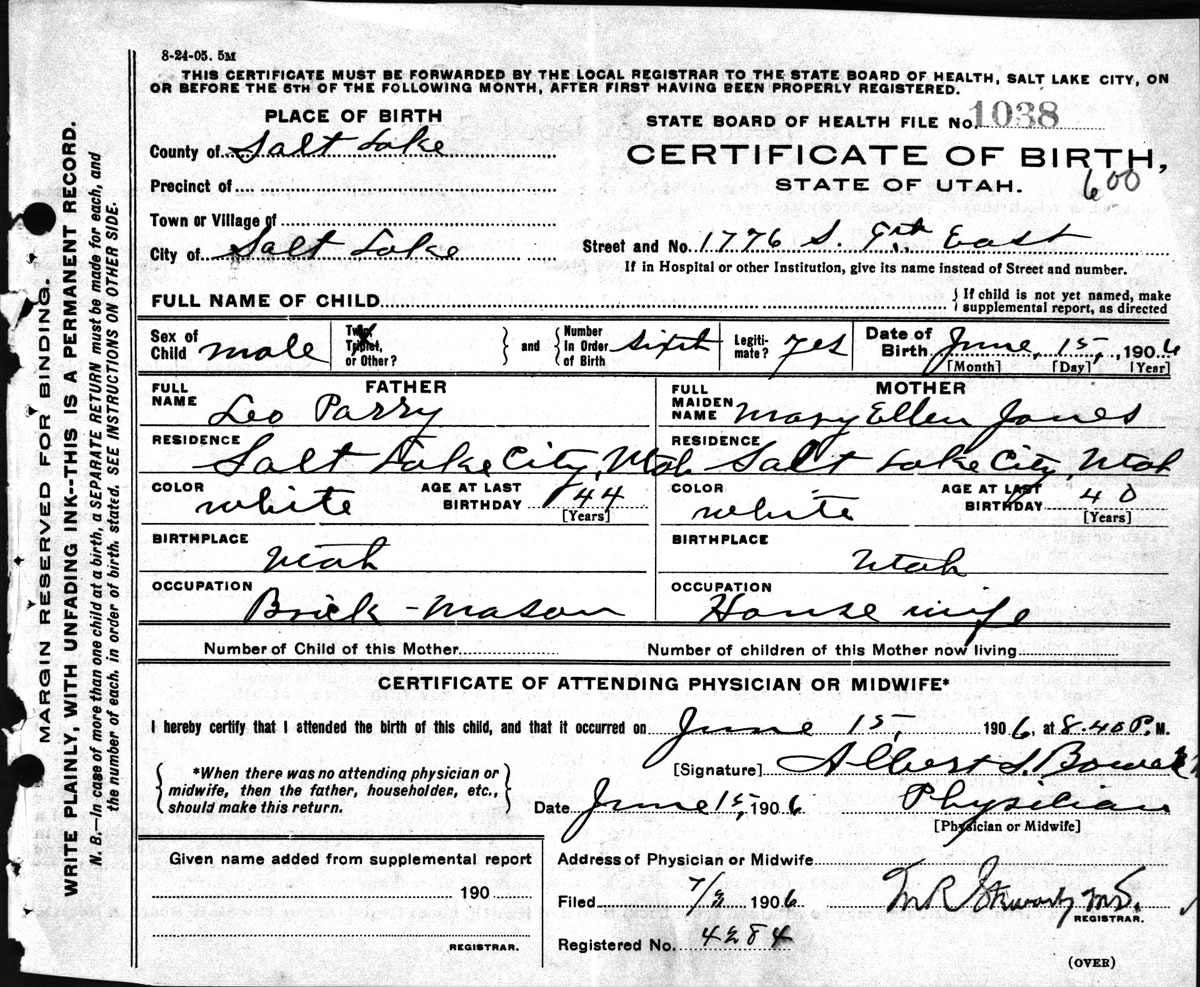 8-24-05. 5M
THIS CERTIFICATE MUST BE FORWARDED BY THE LOCAL REGISTRAR TO THE STATE BOARD OF HEALTH, SALT LAKE CITY, ON
OR BEFORE THE 5TH OF THE FOLLOWING MONTH, AFTER FIRST HAVING BEEN PROPERLY REGISTERED.
PLACE OF BIRTH
STATE BOARD OF HEALTH FILE No. 1038
County of Salt Lake
CERTIFICATE OF BIRTH,
Precinct of
STATE OF UTAH.
600
Town or Village of
City of Salt Lake
Street and No. 1776 S. 9th East
If in Hospital or other Institution, give its name instead of Street and number.
FULL NAME OF CHILD
{ If child is not yet named, make
supplemental report, as directed
Sex of Child male
Twin, Triplet, or Other?
} and { Number In Order of Birth sixth
Legitimate? yes
Date of Birth June, 15, 1906
[Month] [Day] [Year]
FATHER
FULL NAME Leo Parry
MOTHER
FULL MAIDEN NAME Mary Ellen Jones
RESIDENCE Salt Lake City, Utah
RESIDENCE Salt Lake City, Utah
COLOR white
AGE AT LAST BIRTHDAY 44
[Years]
COLOR white
AGE AT LAST BIRTHDAY 40
[Years]
BIRTHPLACE Utah
BIRTHPLACE Utah
OCCUPATION Brick-Mason
OCCUPATION House wife
Number of Child of this Mother
Number of children of this Mother now living
CERTIFICATE OF ATTENDING PHYSICIAN OR MIDWIFE*
I hereby certify that I attended the birth of this child, and that it occurred on June 15, 1906, at 8.40 P. M.
{ *When there was no attending physician or
midwife, then the father, householder, etc.,
should make this return. }
[Signature] Albert S. 
Date June 15, 1906 Physician
[Physician or Midwife]
Given name added from supplemental report
190
REGISTRAR.
Address of Physician or Midwife
Filed 7/2 1906
M.D.
REGISTRAR.
Registered No. 4284
(OVER)
MARGIN RESERVED FOR BINDING.
WRITE PLAINLY, WITH UNFADING INK--THIS IS A PERMANENT RECORD.
N. B.—In case of more than one child at a birth, a SEPARATE RETURN must be made for each, and
the number of each, in order of birth, stated. SEE INSTRUCTIONS ON OTHER SIDE.